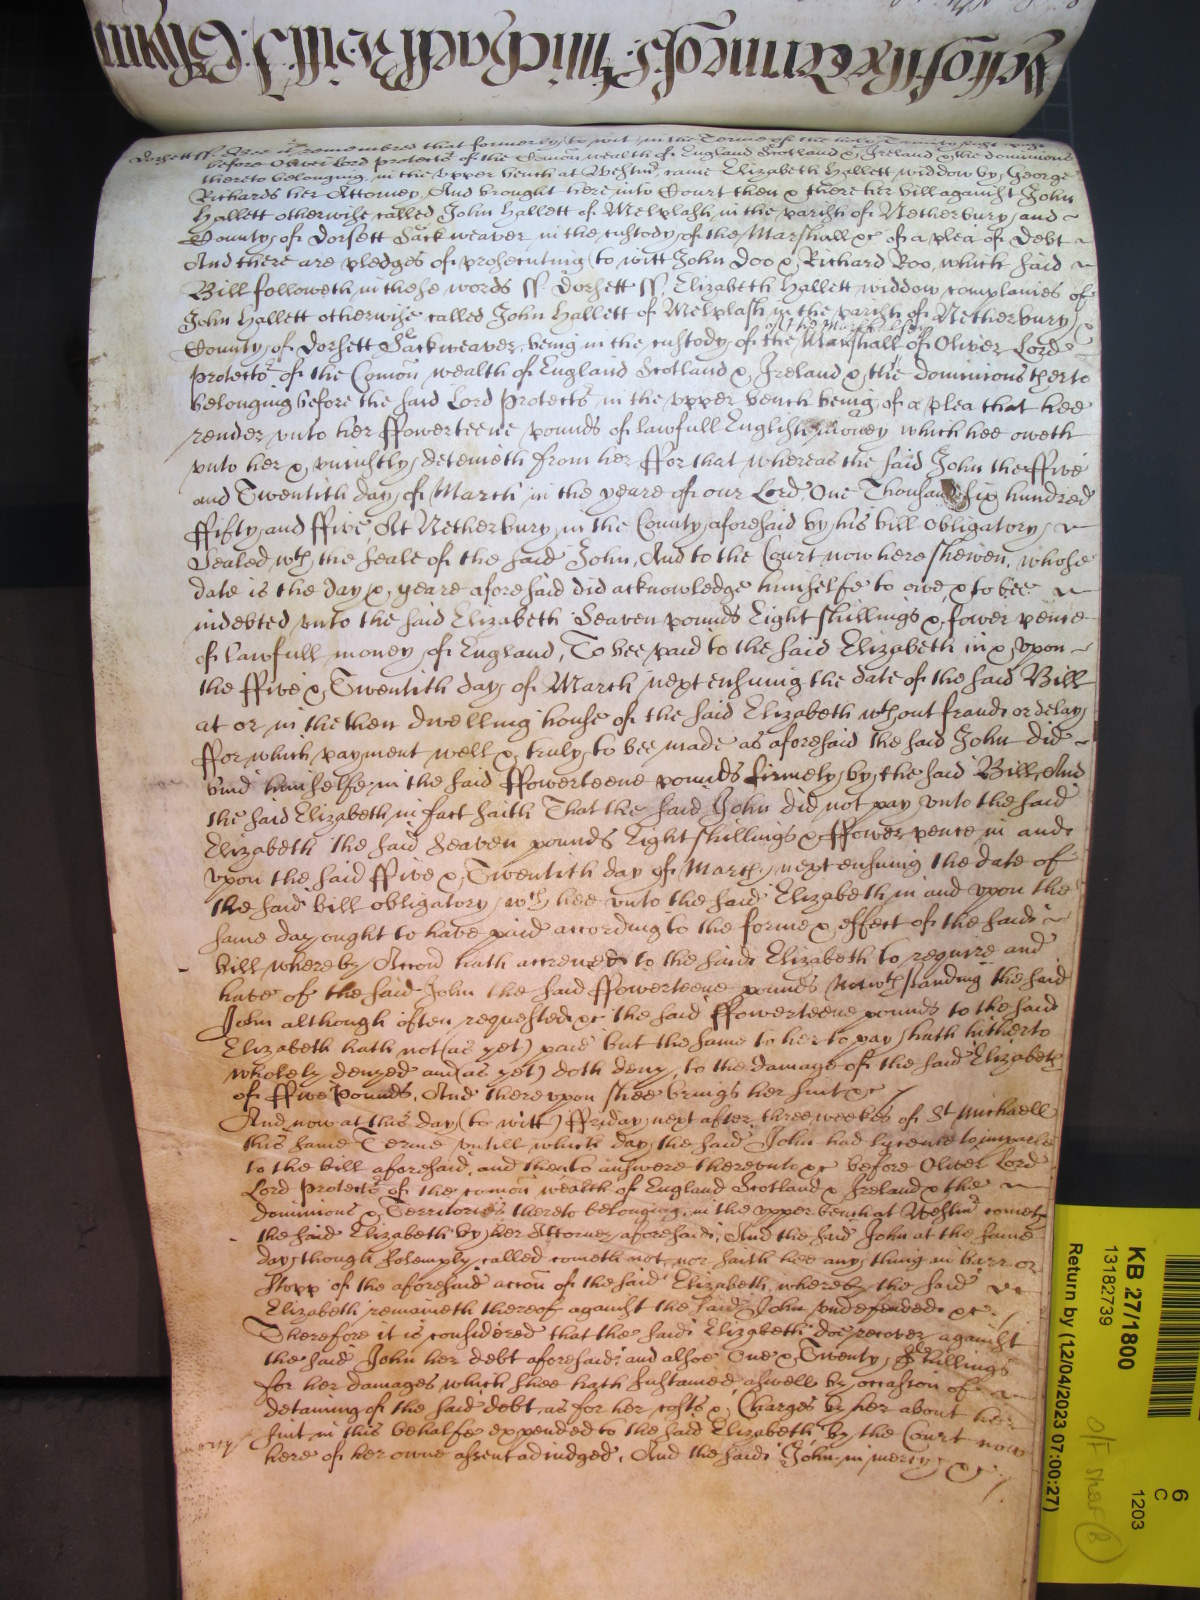 Dorsett ss. Bee it remembred that formerly to wit in the Terme of the holy Trinity last past
before Oliver Lord Protector of the Comon wealth of England Scotland & Ireland & the dominions
thereto belonging, in the upper bench at Westmr, came Elizabeth Hallett widdow by George
Richards her Attorney, And brought here into Court then & there her bill against John
Hallett otherwise called John Hallett of Melplash in the parish of Netherbury and
County of Dorsett Sackweaver in the custody of the Marshall &c of a plea of Debt
And there are pledges of prosecuting (to witt John Doo & Richard Roo, which said
Bill followeth in these words ss. Dorsett ss. Elizabeth Hallett widdow complaines of
John Hallett otherwise called John Hallett of Melplash in the parish of Netherbury &
County of Dorsett Sackweaver, being in the custody of the Marshall of Oliver Lord
Protectr of the Comon wealth of England Scotland & Ireland & the dominions therto
belonging before the said Lord Protectr in the upper bench being, of a plea that hee
render unto her ffowerteene pounds of lawfull English money which hee oweth
unto her & uniustly deteineth from her ffor that whereas the said John the ffive
and Twentith day of March in the yeare of our Lord One Thousand six hundred
ffifty and ffive, At Netherbury in the County aforesaid by his bill obligatory
Sealed wth the seale of the said John, And to the Court now here shewen, whose
date is the day & yeare aforesaid did acknowledge himselfe to owe & to bee
indebted unto the said Elizabeth Seaven pounds Eight shillings & fower pence
of lawfull money of England, To bee paid to the said Elizabeth in & upon
the ffive & Twentith day of March next ensuing the date of the said Bill
at or in the then dwelling house of the said Elizabeth wthout fraude or delay
ffor which payment well & truly to bee made as aforesaid the said John did
bind himselfe in the said ffowerteene pounds firmely by the said Bill, And
the said Elizabeth in fact saith That the said John did not pay unto the said
Elizabeth the said seaven pounds Eight shillings & ffower pence in and
upon the said ffive & Twentith day of March next ensuing the date of
the said bill obligatory, wch hee unto the said Elizabeth in and upon the
same day ought to have paid according to the forme & effect of the said
bill whereby Accon hath accrued to the said Elizabeth to require and
have of the said John the said ffowerteene pounds Notwthstanding the said
John although often requested &c the said ffowerteene pounds to the said
Elizabeth hath not (as yet) paid but the same to her to pay hath hitherto
wholely denyed and (as yet) doth deny, to the damage of the said Elizabeth
of ffive Pounds, And thereupon shee brings her suit &c
And now at this day (to witt) ffriday next after three weekes of St Michaell
this same Terme untill which day the said John had lycence to imparle
to the bill aforesaid, and then to answere thereunto &c before Oliver Lord
Lord Protectr of the comon wealth of England Scotland & Ireland & the
dominions & Territories thereto belonging, in the upper bench at Westmr cometh
the said Elizabeth by her Attorney aforesaid, And the said John at the same
day though solemply called cometh not, nor saith hee any thing in barr or
stopp of the aforesaid accon of the said Elizabeth, whereby the said
Elizabeth remaineth thereof against the said John undefended &c.
Therefore it is considered that the said Elizabeth doe recover against
the said John her debt aforesaid and alsoe One & Twenty shillings
for her damages which shee hath sustained aswell by occasion of
detaining of the said debt, as for her costs & Charges by her about her
suit in this behalfe expended to the said Elizabeth by the Court now
here of her owne assent adiudged, And the said John in mercy &c.
mercy
KB 27/1800
13182739
Return by (12/04/2023 07:00:27)
6
C
1203